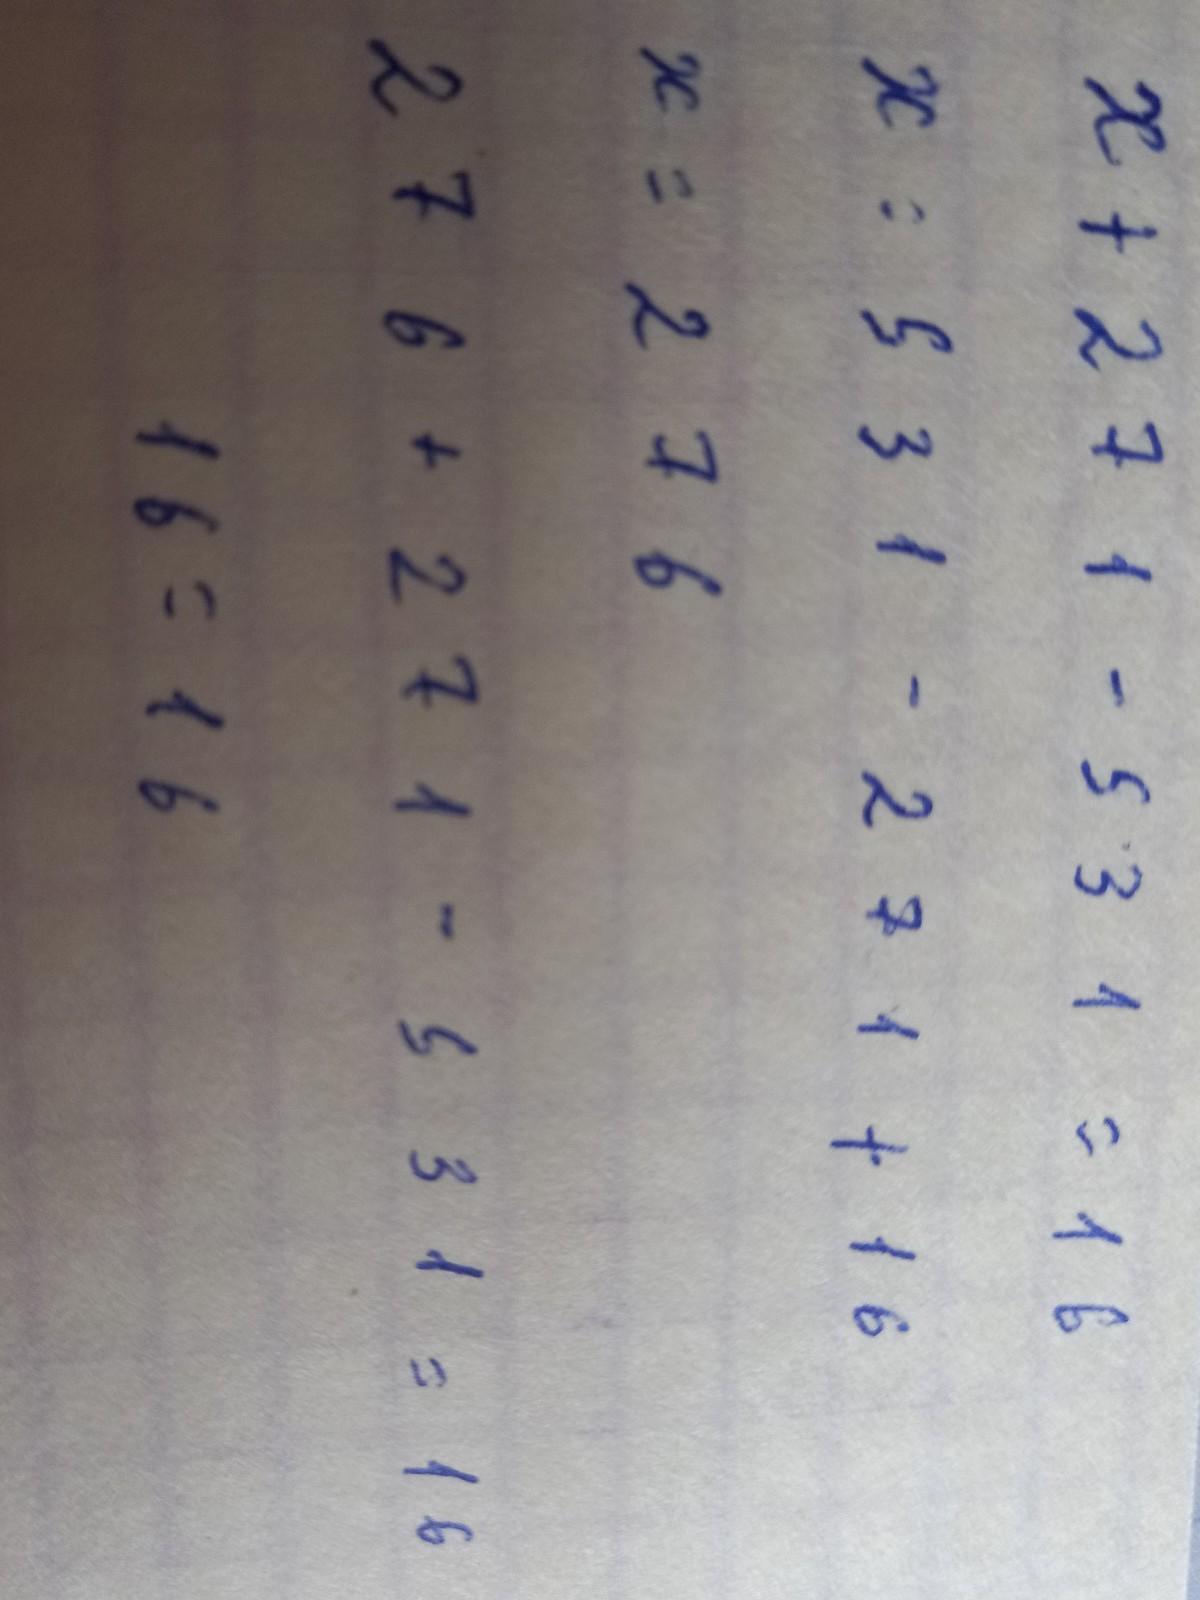 x + 271 - 531 = 16
x = 531 - 271 + 16
x = 276
276 + 271 - 531 = 16
16 = 16